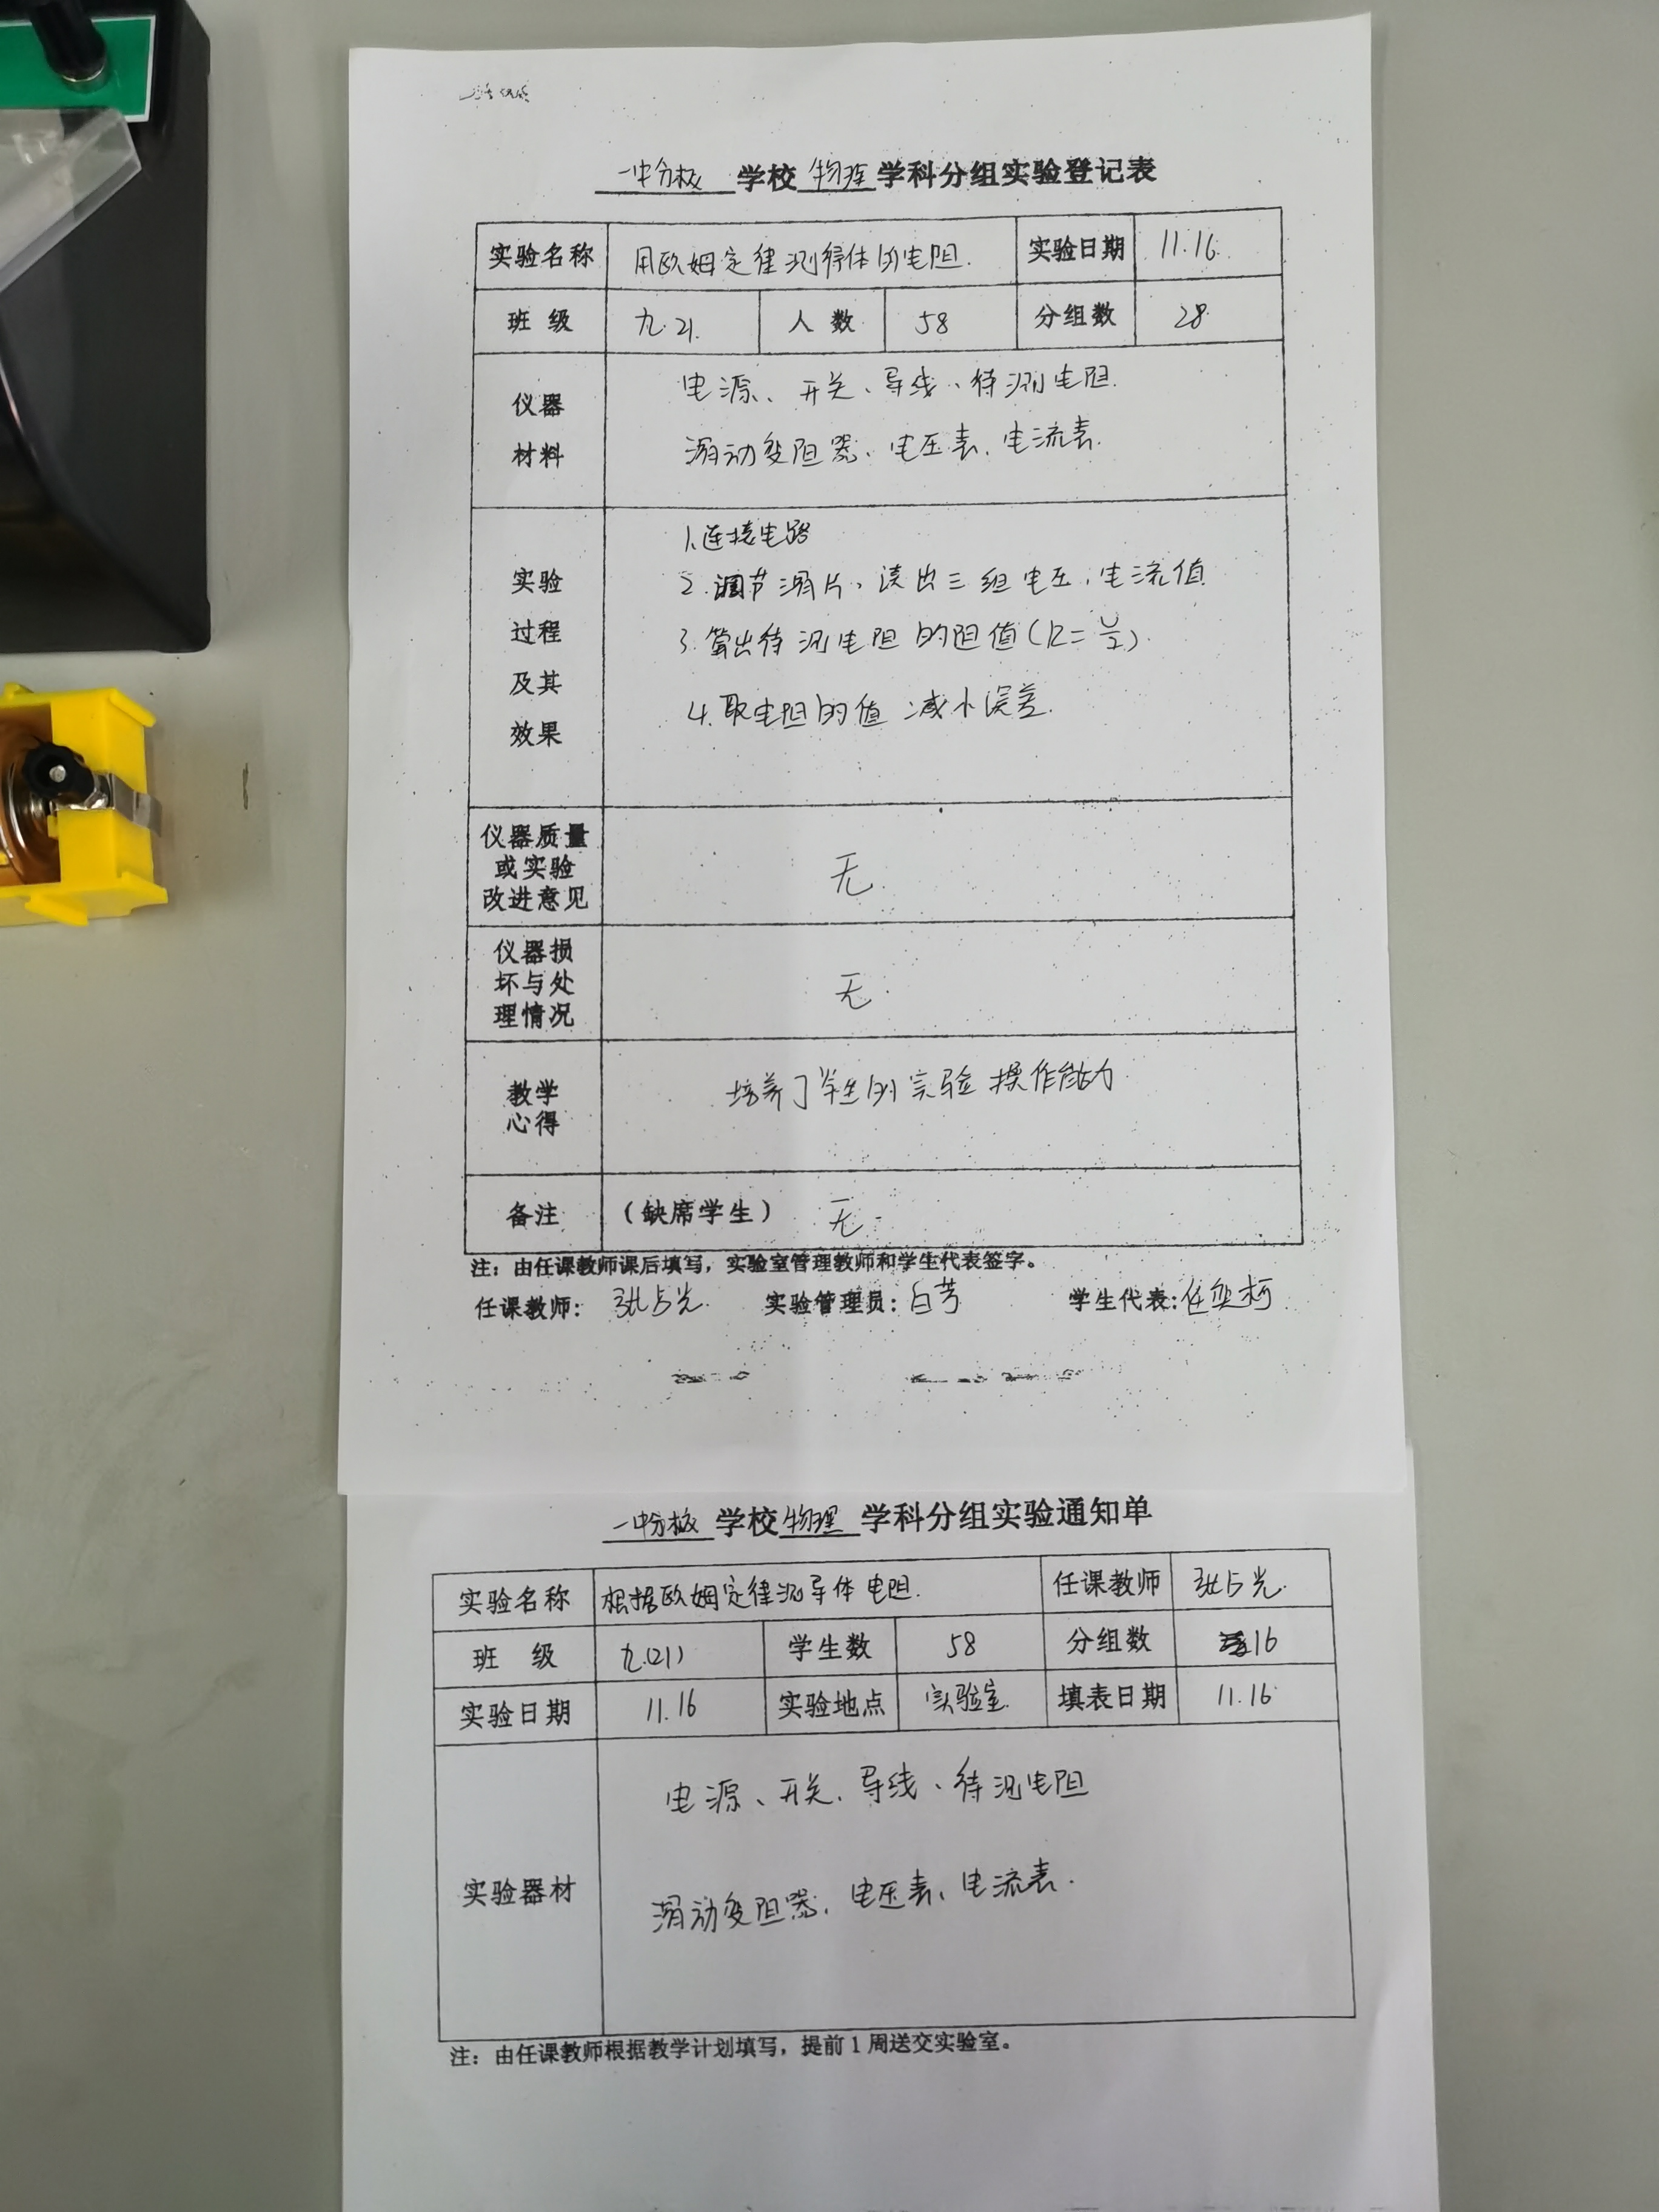 一中分校 学校 物理 学科分组实验登记表
实验名称 用欧姆定律测导体的电阻. 实验日期 11.16.
班 级 九.21. 人 数 58 分组数 28.
仪器材料
电源、开关、导线、待测电阻.
滑动变阻器、电压表、电流表.
实验过程及其效果
1.连接电路
2.调节滑片、读出三组电压、电流值
3.算出待测电阻的阻值(R=U/I).
4.取电阻的值 减小误差.
仪器质量或实验改进意见 无.
仪器损坏与处理情况 无.
教学心得 培养了学生的实验操作能力
备注 (缺席学生) 无.
注：由任课教师课后填写，实验室管理教师和学生代表签字。
任课教师: 张占光. 实验管理员: 白芳 学生代表: 任奕柯
一中分校 学校 物理 学科分组实验通知单
实验名称 根据欧姆定律测导体电阻. 任课教师 张占光.
班 级 九.(21) 学生数 58 分组数 16
实验日期 11.16 实验地点 实验室. 填表日期 11.16
实验器材
电源、开关、导线、待测电阻
滑动变阻器、电压表、电流表.
注：由任课教师根据教学计划填写，提前1周送交实验室。